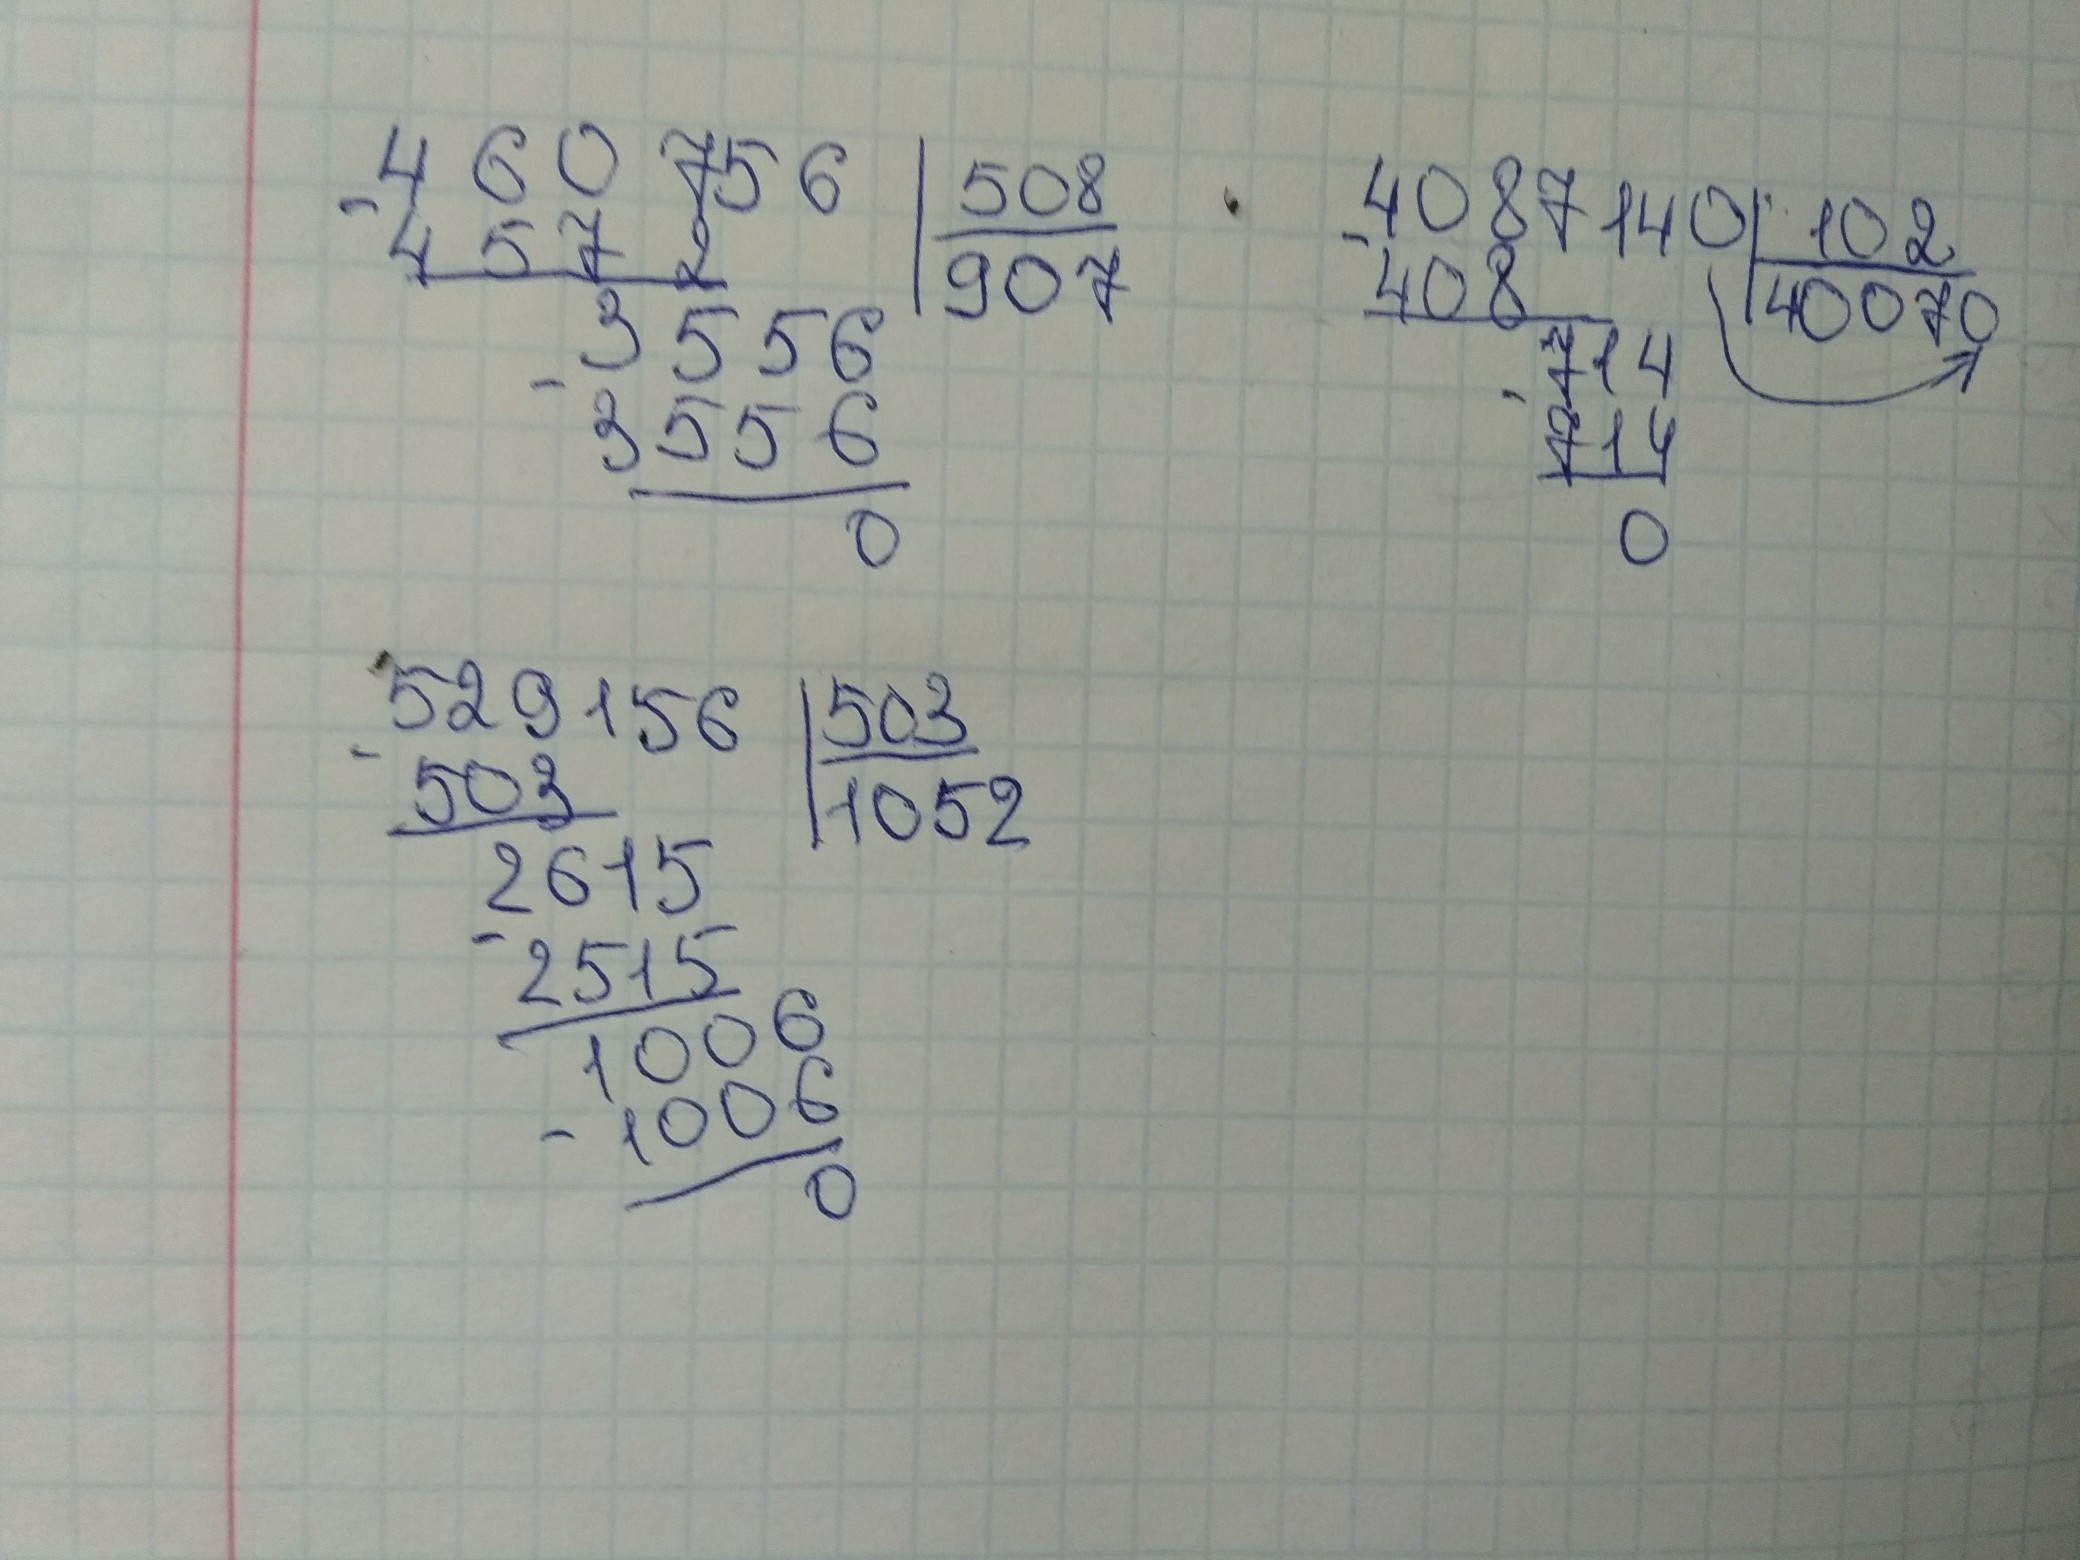 460756 508
- 4572 907
3556
- 3556
0
4087140 102
- 408 40070
714
- 714
0
529156 503
- 503 1052
2615
- 2515
1006
- 1006
0